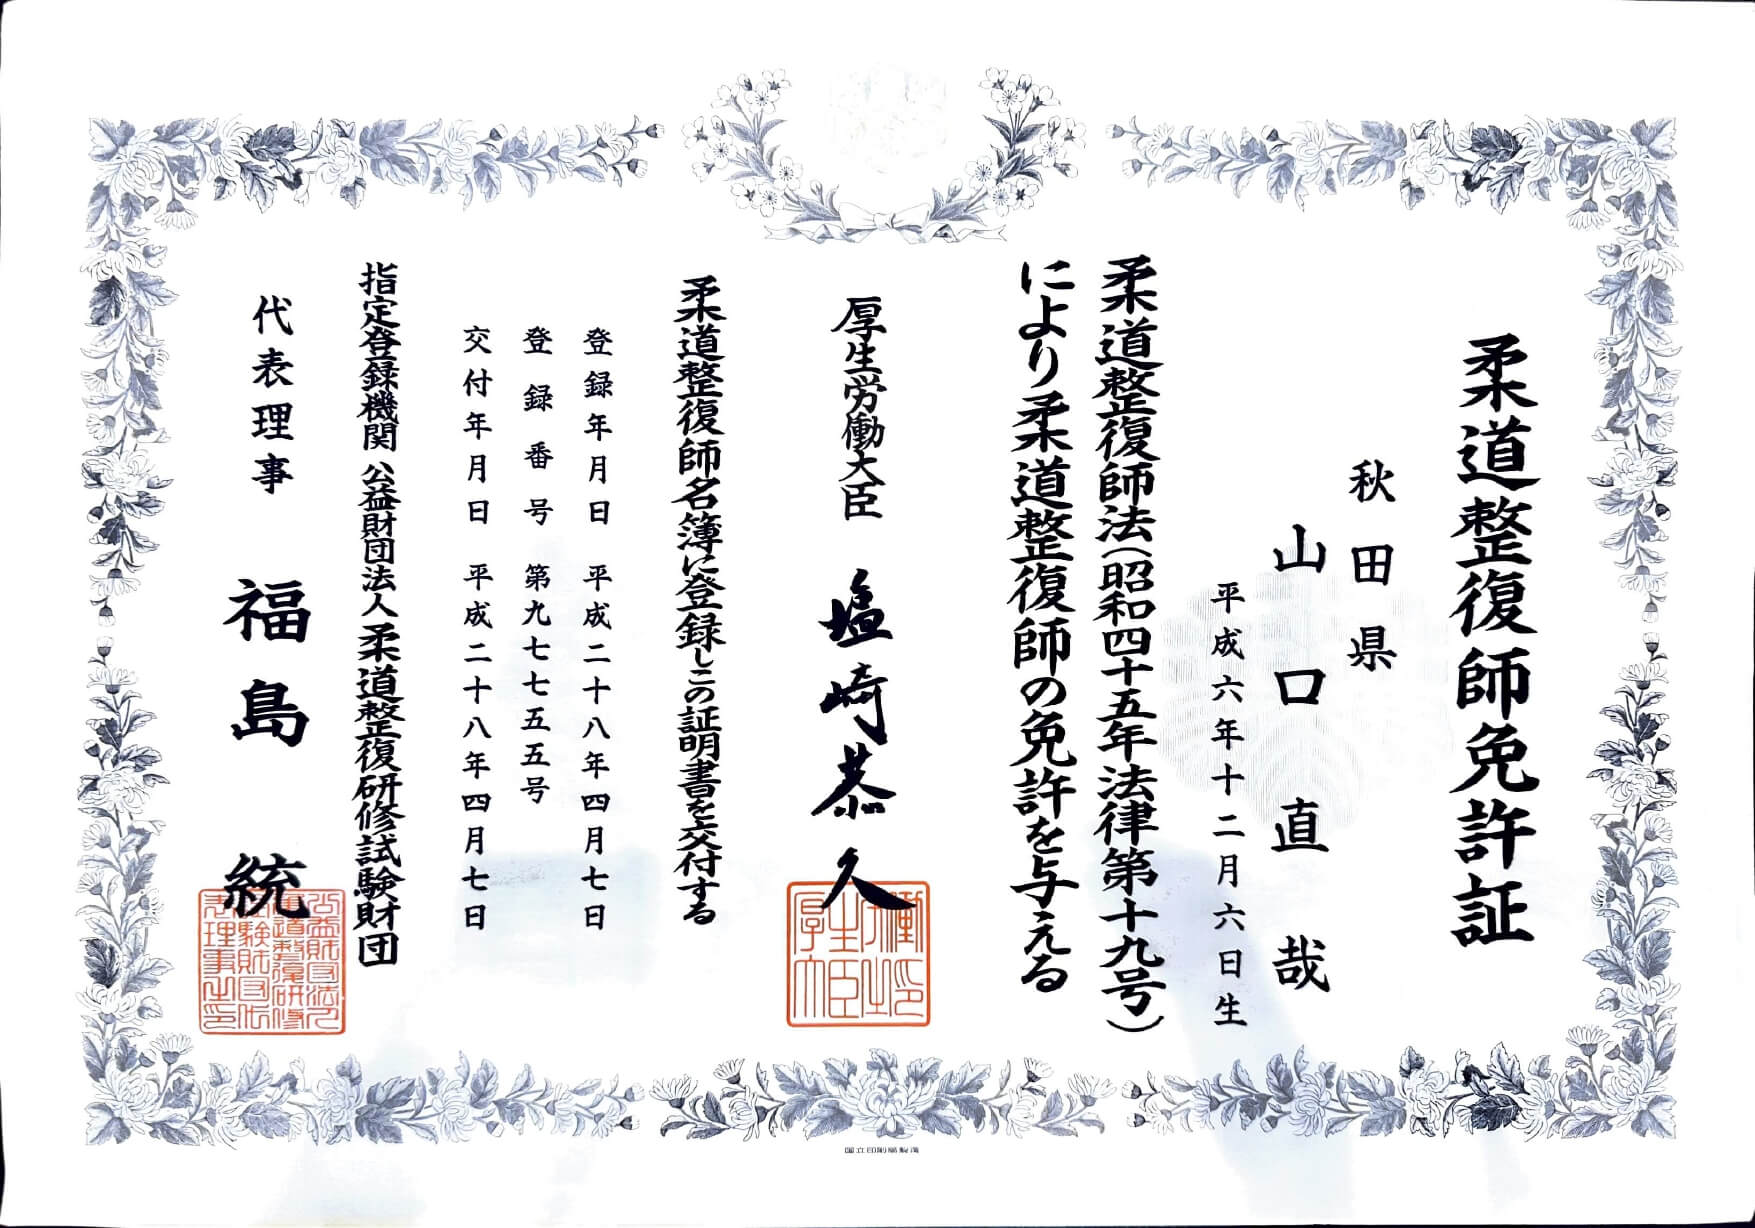 柔道整復師免許証
秋田県
山口直哉
平成六年十二月六日生
柔道整復師法(昭和四十五年法律第十九号)
により柔道整復師の免許を与える
厚生労働大臣 塩崎恭久
柔道整復師名簿に登録しこの証明書を交付する
登録年月日 平成二十八年四月七日
登録番号 第九七七五五号
交付年月日 平成二十八年四月七日
指定登録機関 公益財団法人柔道整復研修試験財団
代表理事 福島統